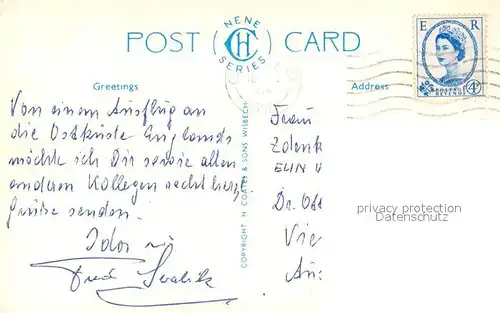 POST CARD
NENE
CH
SERIES
E R
POSTAGE
REVENUE
4D
Greetings
Address
Von einem Ausflug an
die Ostküste Englands
möchte ich Dir sowie allen
anderen Kollegen recht herzl.
Grüße senden.
Fred
COPYRIGHT H COATES & SONS WISBECH
Frau
Zdenk
ELIN
Dr.
Vie
privacy protection
Datenschutz